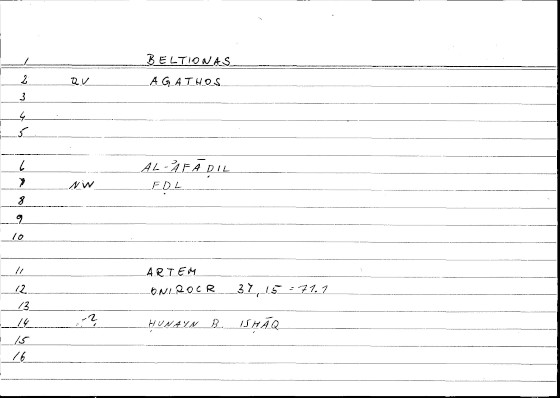 1 BELTIONAS
2 QV AGATHOS
3
4
5
6 AL-ʾAFĀḌIL
7 NW FḌL
8
9
10
11 ARTEM
12 ONIROCR 37,15 = 71.1
13
14 -2 ḤUNAYN B. ISḤĀQ
15
16